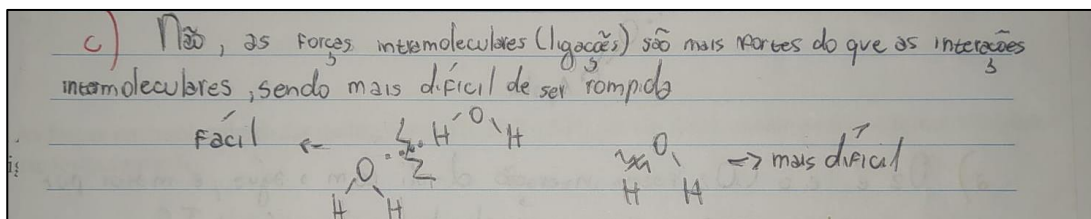 c) Não, as forças intramoleculares (ligações) são mais fortes do que as interações
intermoleculares, sendo mais difícil de ser rompida
Fácil ← H O H → mais difícil
O O
H H H H